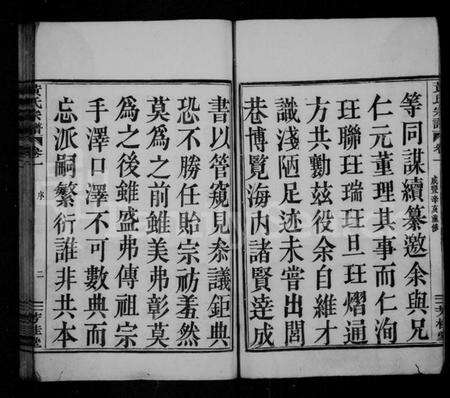 等同謀續纂邀余與兄
仁元董理其事而仁洵
班聯班瑞班旦班熠通
方共勷茲役余自維才
識淺陋足迹未嘗出閭
巷博覽海內諸賢達成
書以管窺見叅議鉅典
恐不勝任貽宗祊羞然
莫為之前雖美弗彰莫
為之後雖盛弗傳祖宗
手澤口澤不可數典而
忘派嗣繁衍誰非共本
黃氏宗譜
卷一
序
二